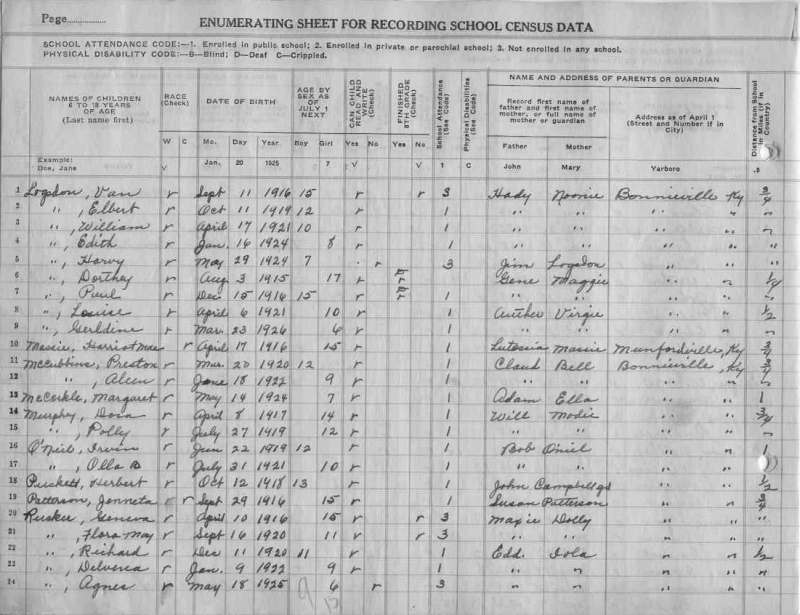 Page
ENUMERATING SHEET FOR RECORDING SCHOOL CENSUS DATA
SCHOOL ATTENDANCE CODE:—1. Enrolled in public school; 2. Enrolled in private or parochial school; 3. Not enrolled in any school.
PHYSICAL DISABILITY CODE:—B—Blind; D—Deaf C—Crippled.
NAMES OF CHILDREN 6 TO 18 YEARS OF AGE (Last name first) RACE (Check) DATE OF BIRTH AGE BY SEX AS OF JULY 1 NEXT CAN CHILD READ AND WRITE (Check) FINISHED 8TH GRADE (Check) School Attendance (See Code) Physical Disabilities (See Code) NAME AND ADDRESS OF PARENTS OR GUARDIAN Distance from School in Miles (if in Country)
Record first name of father and first name of mother, or full name of mother or guardian Address as of April 1 (Street and Number if in City)
W C Mo. Day Year Boy Girl Yes No Yes No Father Mother
Example: Doe, Jane V Jan. 20 1925 7 V V 1 C John Mary Yarboro .5
1 Logsdon, Van r Sept 11 1916 15 r r 3 Hady Noonie Bonnieville Ky 3/4
2 ", Elbert r Oct 11 1919 12 r 1 " " " " "
3 ", William r April 17 1921 10 r 1 " " " " "
4 ", Edith r Jan. 16 1924 8 r 1 " " " " "
5 ", Harvy r May 29 1924 7 r 3 Jim Logsdon " " "
6 ", Dorthey r Aug 3 1915 17 r r 1 Gene Maggie " " 1/4
7 ", Paul r Dec 15 1916 15 r r 1 " " " " "
8 ", Louise r April 6 1921 10 r 1 Auther Virgie " " 1/2
9 ", Gerldine r Mar. 23 1926 6 r 1 " " " " "
10 Massie, Harriet Mae r April 17 1916 15 r 1 Massie Munfordville, Ky 3/4
11 McCubbins, Preston r Mar. 20 1920 12 r 1 Claud Bell Bonnieville, Ky 3/4
12 ", r June 18 1922 9 r 1 " " " " "
13 McCorkle, Margaret r May 14 1924 7 r 1 Adam Ella " " 1
14 Murphy, Dova r April 8 1917 14 r 1 Will Modie " " 3/4
15 ", Polly r July 27 1919 12 r 1 " " " " "
16 O'Neil, Irvin r Jun 22 1919 12 r 1 Bob Oniel " " 1
17 ", Olla B r July 31 1921 10 r 1 " " " " "
18 Puckett, Herbert r Oct 12 1918 13 r 1 John Campbell gd " " 1/2
19 Patterson, Jonneta r Sept 29 1916 15 r 1 Susan Patterson " " 3/4
20 Rusker, Geneva r April 10 1916 15 r r 3 Dolly " " "
21 ", Flora May r Sept 16 1920 11 r r 3 " " " " "
22 ", Richard r Dec 11 1920 11 r 1 Edd. Iola " " 1/2
23 ", r Jan. 9 1922 9 r 1 " " " " "
24 ", Agnes r May 18 1925 6 r 3 " " " " "